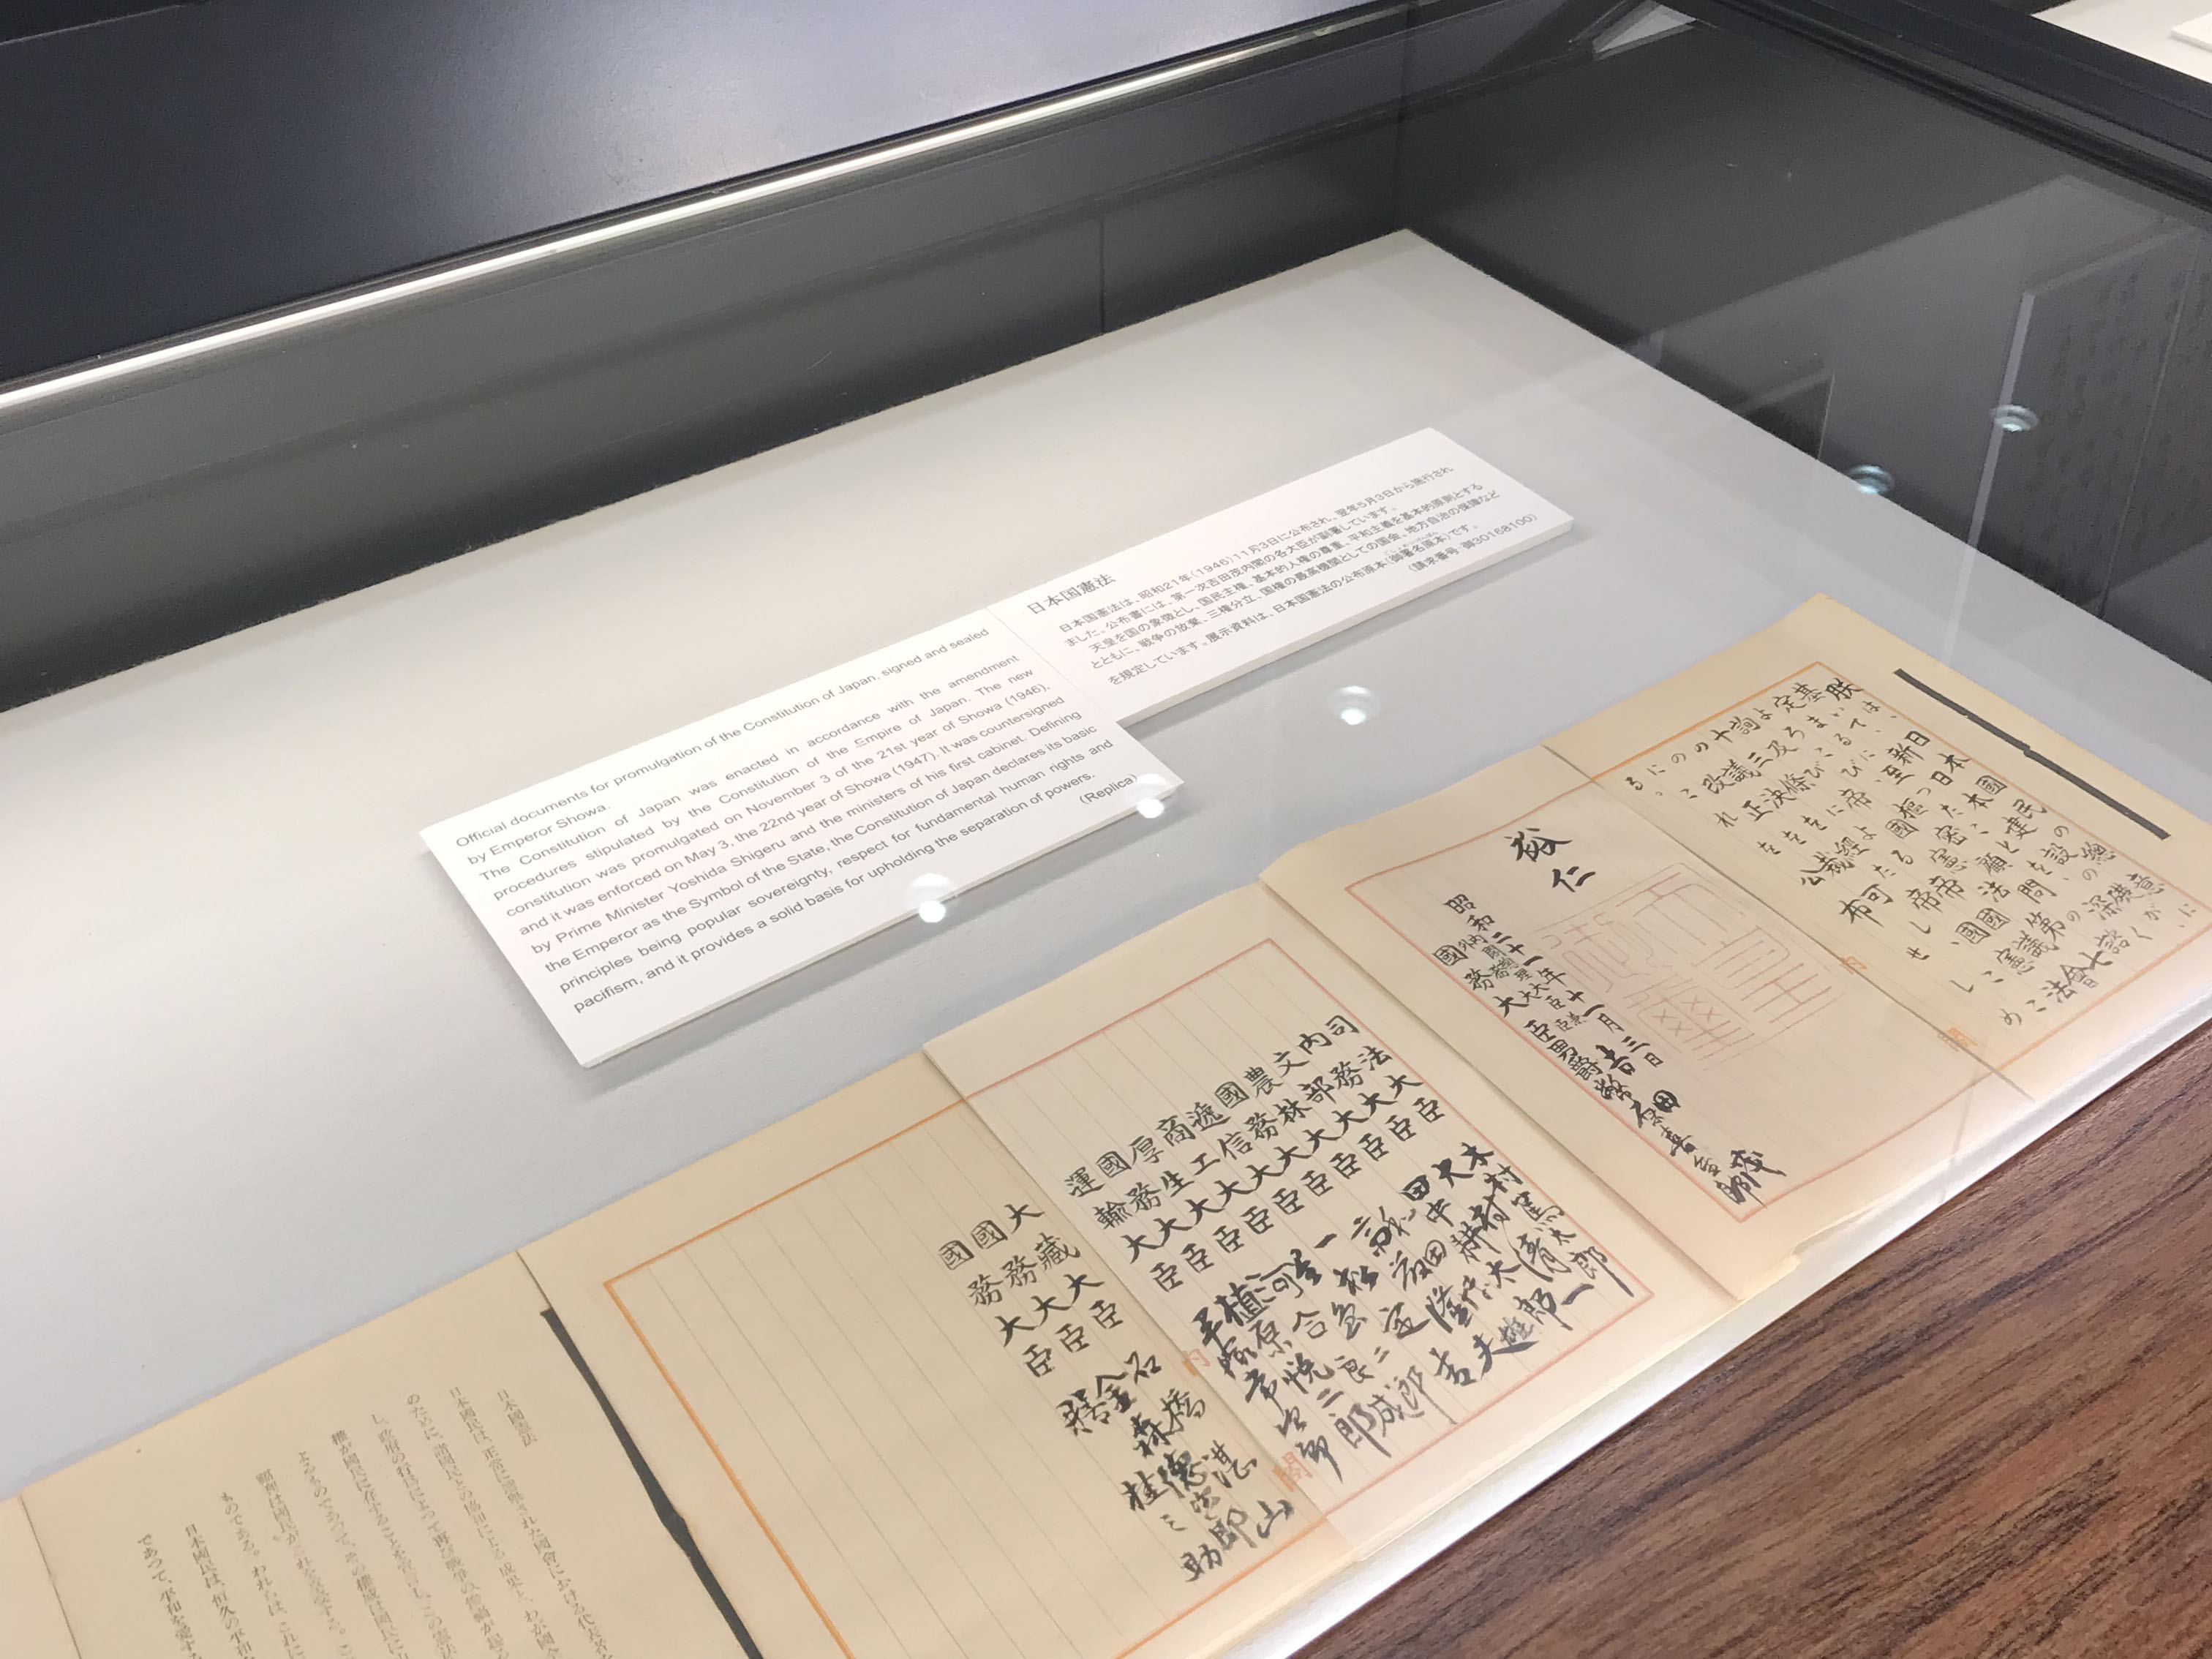 Official documents for promulgation of the Constitution of Japan, signed and sealed
by Emperor Showa.
The Constitution of Japan was enacted in accordance with the amendment
procedures stipulated by the Constitution of the Empire of Japan. The new
constitution was promulgated on November 3 of the 21st year of Showa (1946),
and it was enforced on May 3, the 22nd year of Showa (1947). It was countersigned
by Prime Minister Yoshida Shigeru and the ministers of his first cabinet. Defining
the Emperor as the Symbol of the State, the Constitution of Japan declares its basic
principles being popular sovereignty, respect for fundamental human rights and
pacifism, and it provides a solid basis for upholding the separation of powers.
(Replica)
日本国憲法
日本国憲法は、昭和21年(1946)11月3日に公布され、翌年5月3日から施行され
ました。公布書には、第一次吉田茂内閣の各大臣が副署しています。
天皇を国の象徴とし、国民主権、基本的人権の尊重、平和主義を基本的原則とする
とともに、戦争の放棄、三権分立、国権の最高機関としての国会、地方自治の保障など
を規定しています。展示資料は、日本国憲法の公布原本(御署名原本)です。
(請求番号:御30168100)
朕は、日本國民の總意に
基いて、新日本建設の礎が、
定まるに至つたことを、深く
よろこび、樞密顧問の諮
詢及び帝國憲法第七
十三條による帝國議會
の議決を經た帝國憲法
の改正を裁可し、ここ
にこれを公布せしめ
る。
裕仁
天皇御璽
昭和二十一年十一月三日
内閣總理大臣兼
外務大臣 吉田茂
國務大臣 男爵幣原喜重郎
司法大臣 木村篤太郎
内務大臣 大村清一
文部大臣 田中耕太郎
農林大臣 和田博雄
國務大臣 斎藤隆夫
遞信大臣 一松定吉
商工大臣 星島二郎
厚生大臣 河合良成
國務大臣 植原悦二郎
運輸大臣 平塚常次郎
大藏大臣 石橋湛山
國務大臣 金森德次郎
國務大臣 膳桂之助
日本國憲法
日本國民は、正當に選擧された國會における代表者
のために、諸國民との協和による成果と、わが國全
し、政府の行爲によつて再び戰爭の慘禍が起
權が國民に存することを宣言し、この憲法
よるものであつて、その權威は國民に
福利は國民がこれを享受する。
ものである。われらは、これに
日本國民は、恒久の平和
であつて、平和を愛す